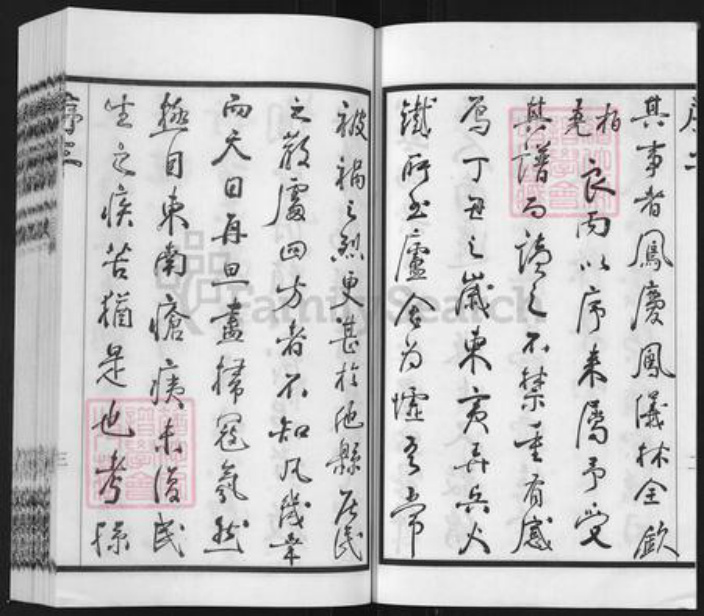 其事者鳳慶鳳儀林全歐
柏堯良丙以序來屬予受
其譜而讀之不禁重有感
焉丁丑之歲東夷弄兵火
鐵所至廬舍為墟吾常
被禍之烈更甚於他縣居民
之散處四方者不知凡幾幸
而天日再旦盡掃寇氛然
極目東南瘡痍未復民
生之疾苦猶是也考
序
三
FamilySearch